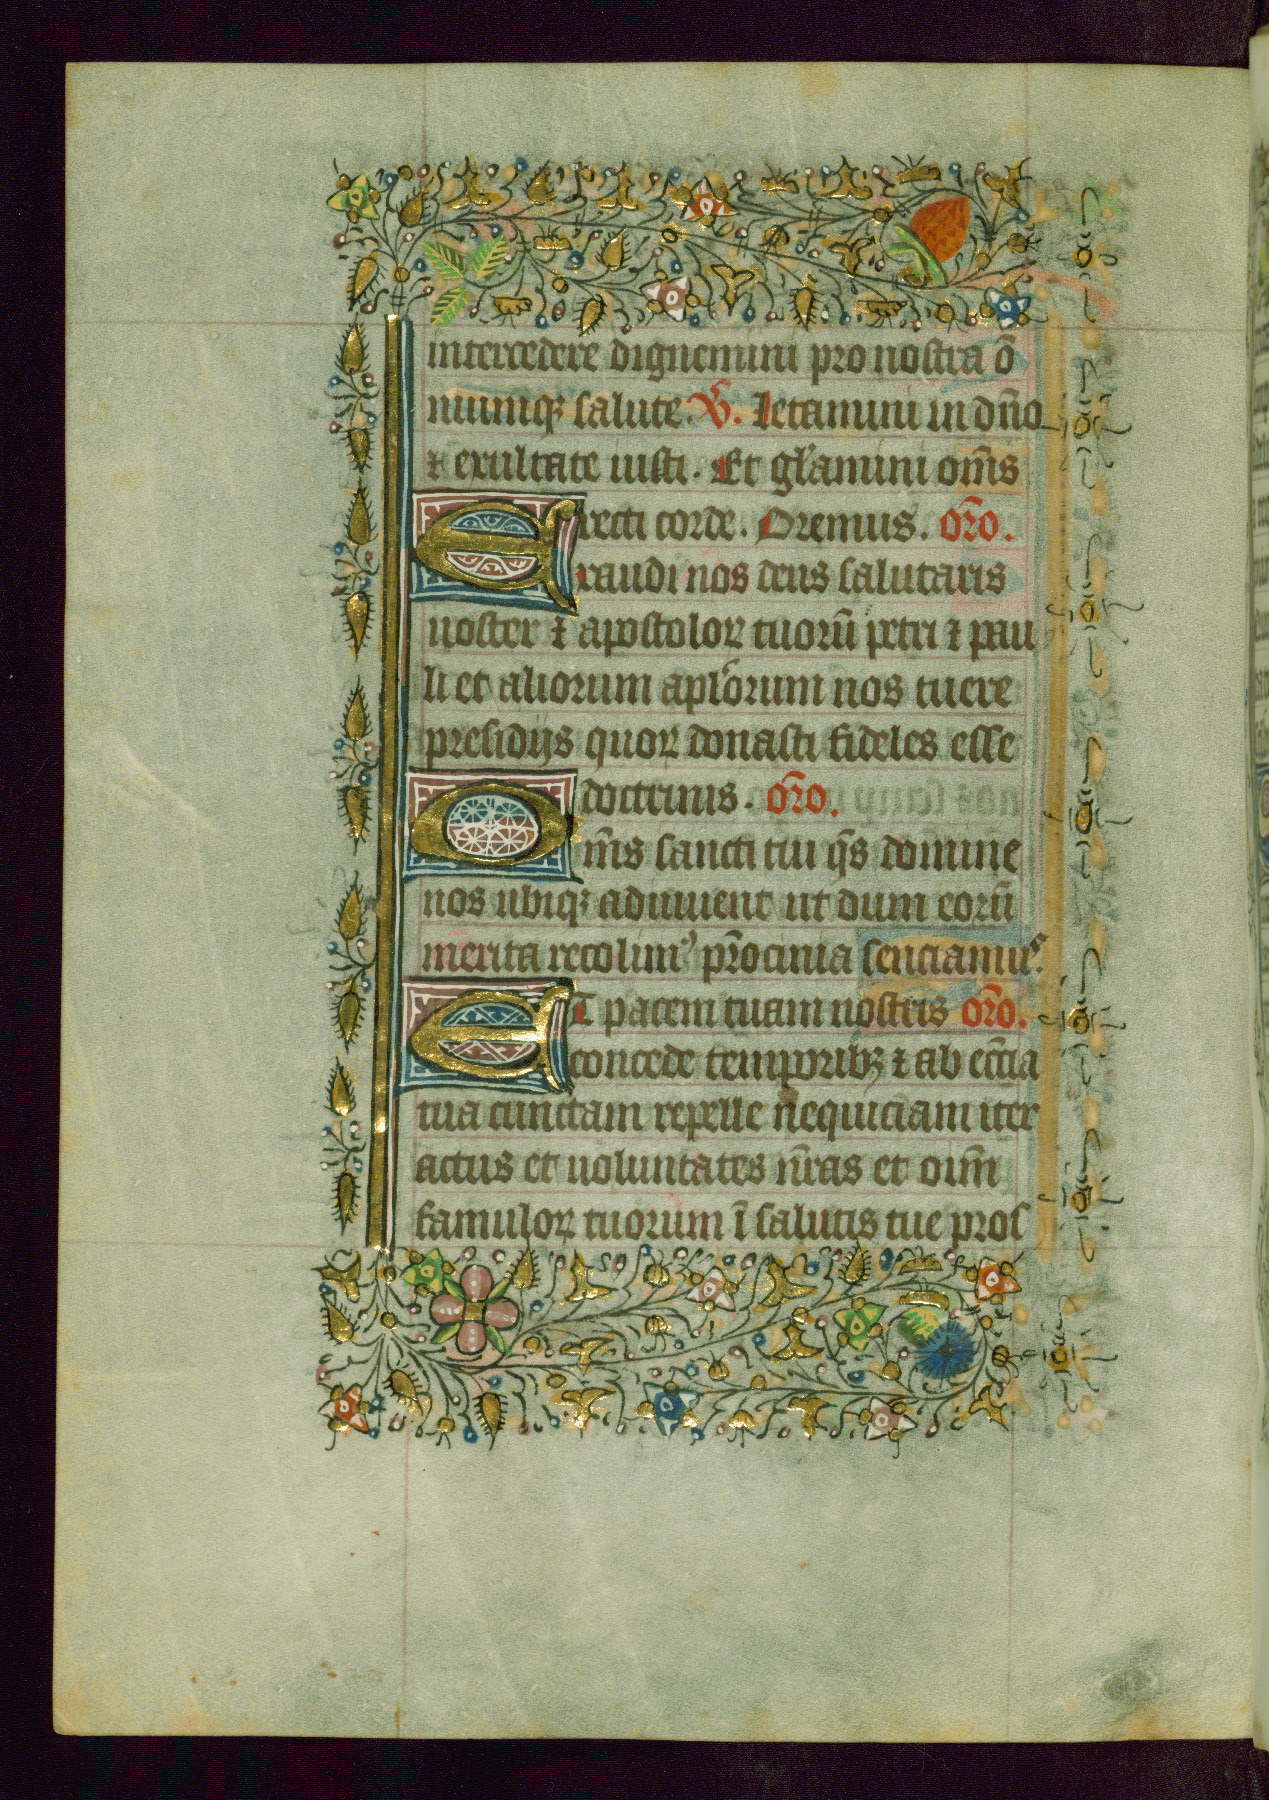 intercedere dignemini pro nostra õ
niumqꝫ salute. ℣. Letamini in dño
⁊ exultate iusti. Et gl'amini om̃s
recti corde. Oremus. or̃o.
Exaudi nos deus salutaris
noster ⁊ apostoloꝝ tuorũ petri ⁊ pau
li et aliorum apl'orum nos tuere
presidijs quoꝝ donasti fideles esse
doctrinis. or̃o.
Om̃s sancti tui q̃s domine
nos ubiqꝫ adiuuent ut dum eorũ
merita recolimꝰ pr̃ocinia senciamus.
ET pacem tuam nostris or̃o.
concede temporibꝫ ⁊ ab ecc̃ia
tua cunctam repelle nequiciam iter
actus et uoluntates nr̃as et oim̃
famuloꝝ tuorum ĩ salutis tue pros